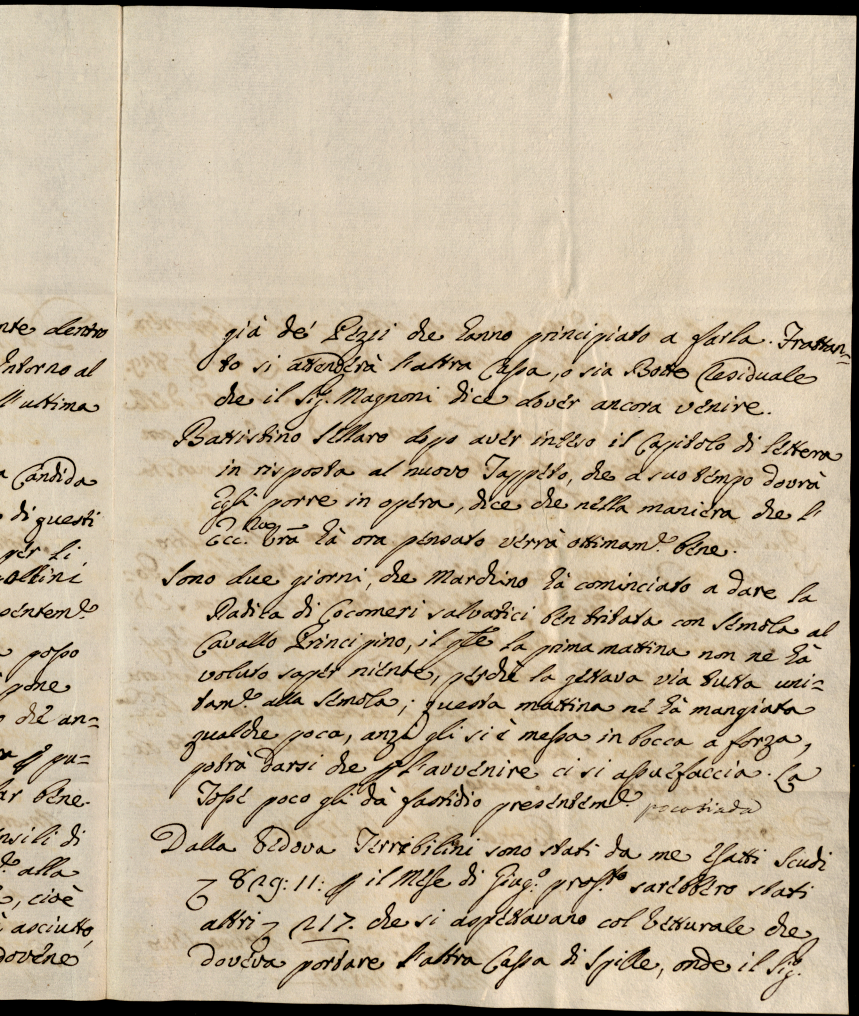 nte dentro
Intorno al
l'ultima
a Candida
di questi
per li
ollini
sentem.e
posso
pone
che an=
pu=
ar bene.
nsili di
alla
, cioè
asciutto,
dovene
già de' Pezzi che hanno principiato a farla. Frattan=
to si attenderà l'altra Cassa, o sia Botte Residuale
che il Sig. Magnoni dice dover ancora venire.
Battistino Sellaro dopo aver inteso il Capitolo di lettera
in risposta al nuovo Tappeto, che a suo tempo dovrà
Egli porre in opera, dice che nella maniera che l'
Ecc. Vrã hà ora pensato verrà ottimam.e bene.
Sono due giorni, che Marchino hà cominciato a dare la
Radica di Cocomeri salvatici ben tritata con semola al
Cavallo Principino, il qle la prima mattina non ne hà
voluto saper niente, perchè la gettava via tutta uni=
tam.e alla semola; questa mattina ne hà mangiata
qualche poca, anzi gli si è messa in bocca a forza,
potrà darsi che p l'avvenire ci si assuefaccia. La
Tosse poco gli dà fastidio presentem.e
Dalla Vedova Terribilini sono stati da me esatti Scudi
829: 11: p il Mese di Giug.o pross.o sarebbero stati
altri 217. che si aspettavano col Vetturale che
doveva portare l'altra Cassa di Spille, onde il Sig.